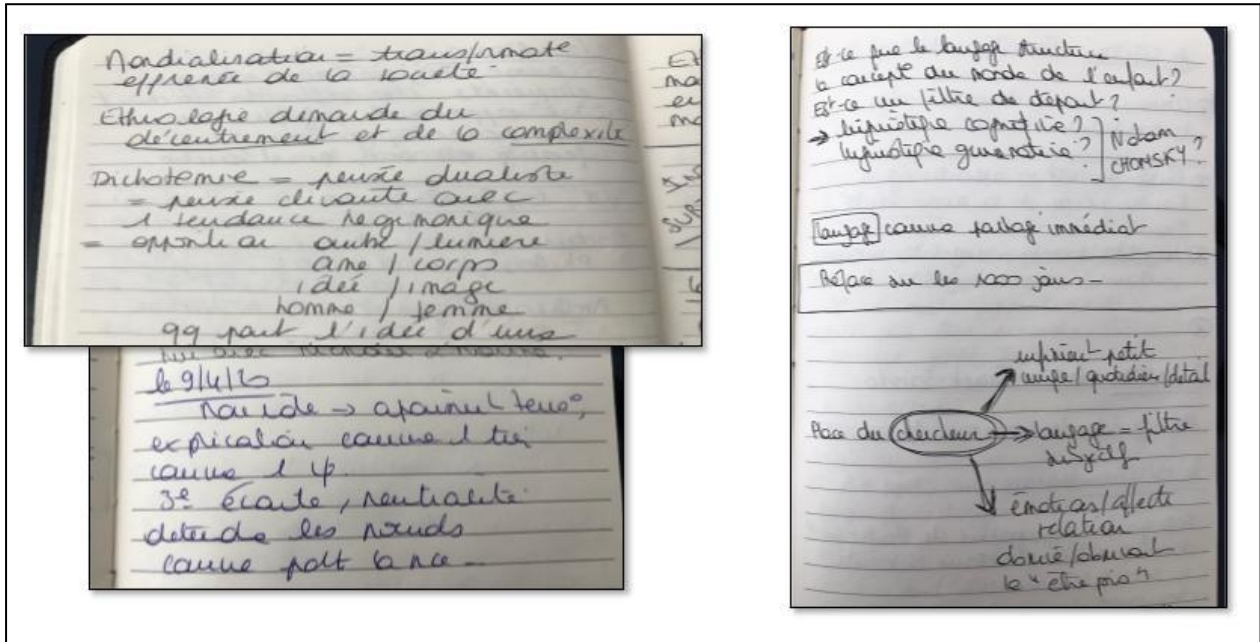 Mondialisation = transformat°
effrenée de la société
Ethnologie demande du
décentrement et de la complexité
Dichotomie = pensée dualiste
= pensée clivante avec
1 tendance hegemonique
= opposition ombre / lumière
ame / corps
idée / image
homme / femme
qq part l'idée d'une
Et
ma
en
le 9/4/20
→ apaisemt tens°,
explication comme 1 tiers
comme 1 ψ.
3e écoute, neutralité
detendre les noeuds
comme pdt la
Est-ce que le langage structure
la concept° du monde de l'enfant ?
Est-ce un filtre de départ ?
→ linguistique cognitive ?
linguistique générative ?
Noam
CHOMSKY ?
langage comme passage immédiat
Préface sur les 1000 jours -
infiniment petit
/ quotidien / détail
Place du chercheur → langage = filtre
subjectif
émotions / affects
relation
/ observant
le "être pris"